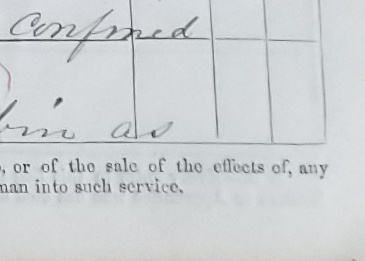 Confined
as
, or of the sale of the effects of, any
man into such service.